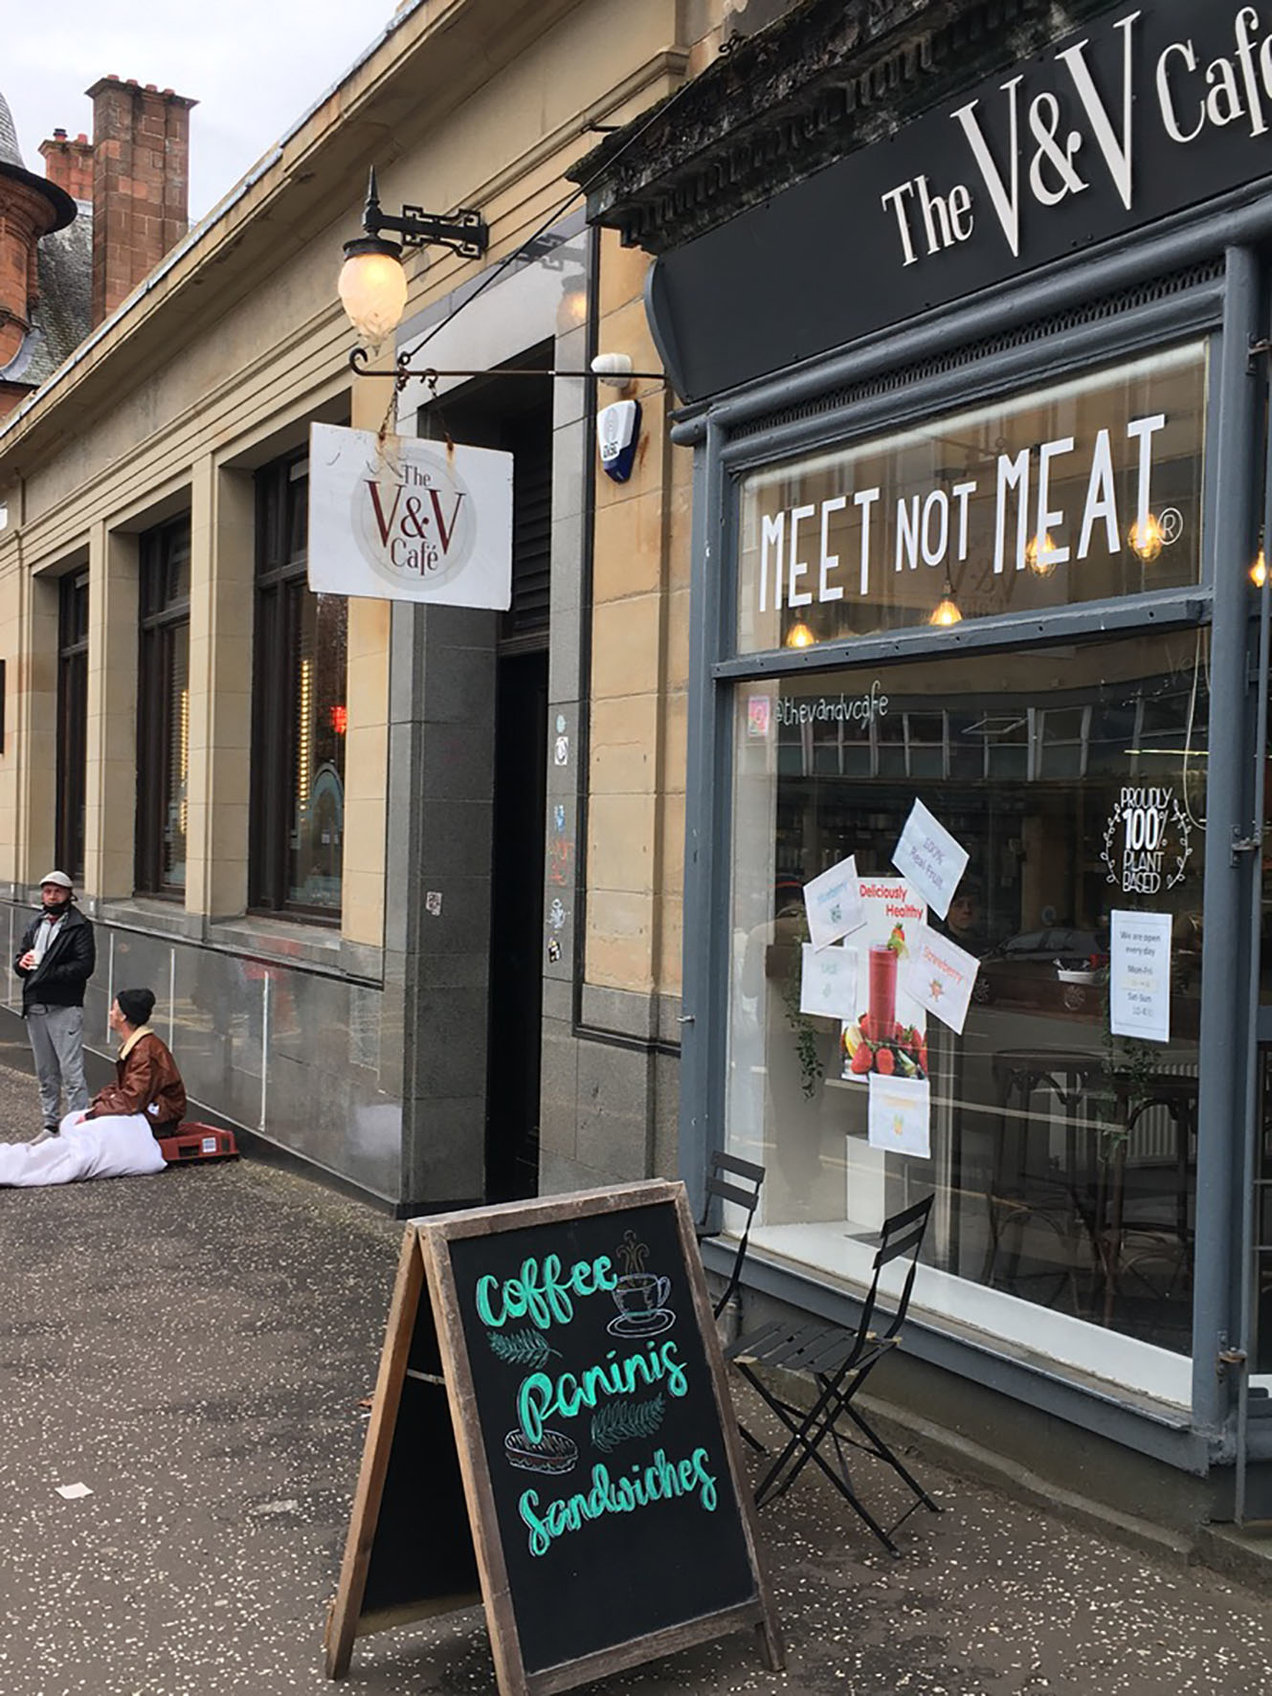 The V&V Café
The
V&V
Café
MEET NOT MEAT®
@thevandvcafe
PROUDLY
100%
PLANT
BASED
100%
Real Fruit
Deliciously
Healthy
Blueberry
Strawberry
We are open
every day
Mon-Fri
Sat-Sun
Coffee
Paninis
Sandwiches